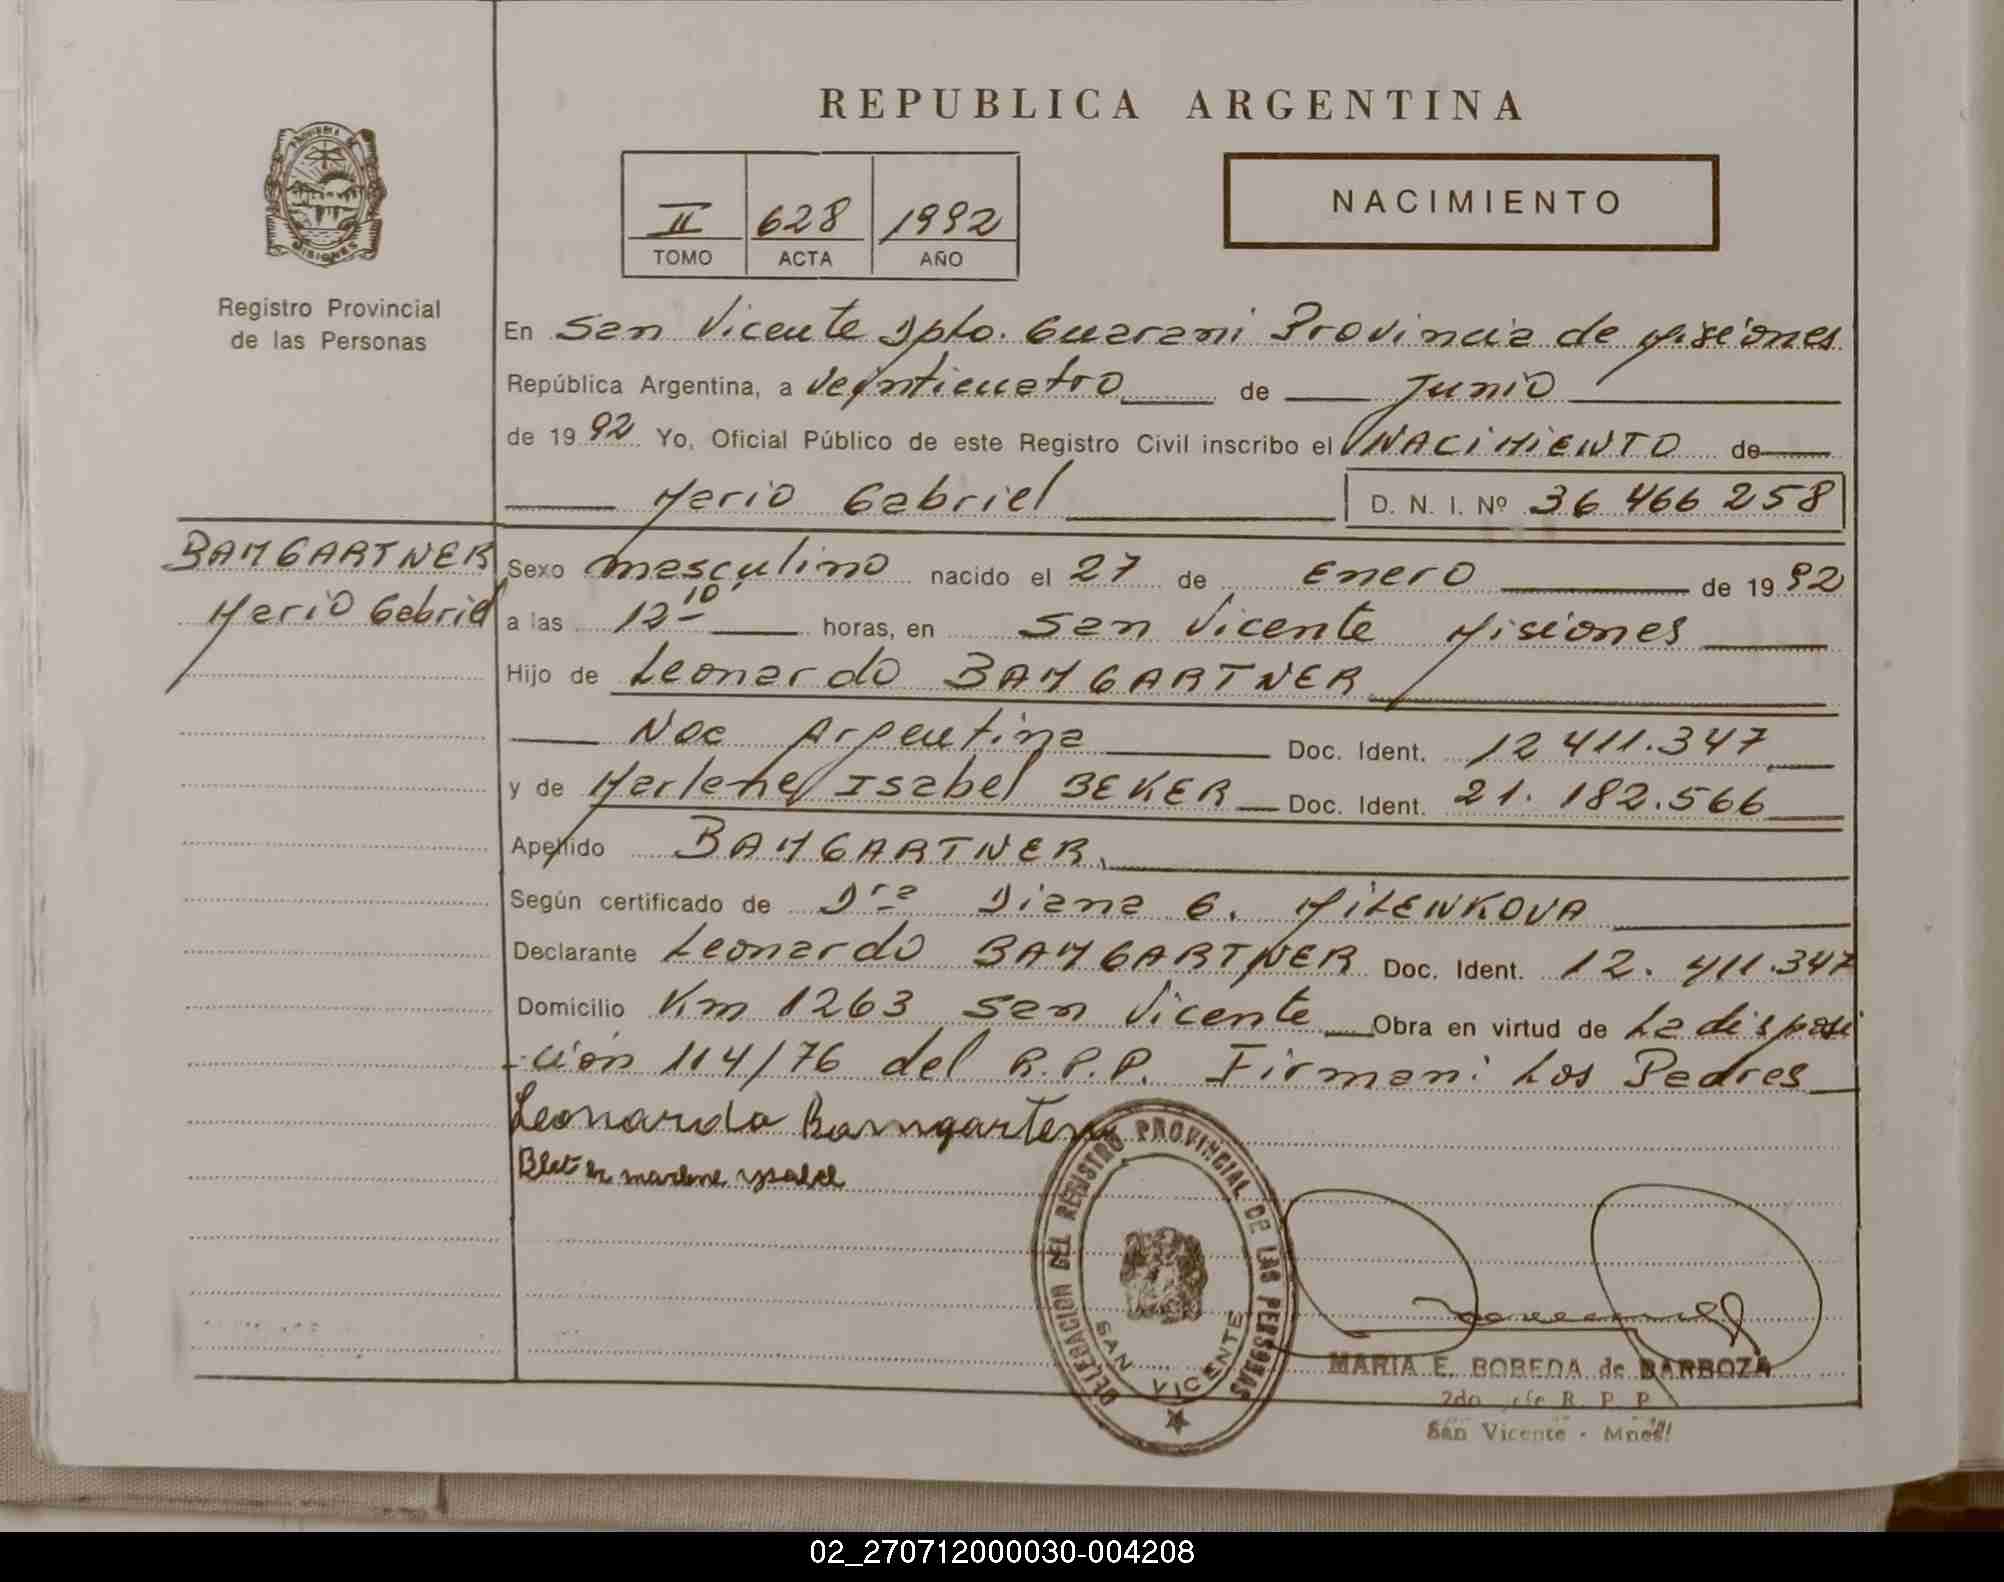 REPUBLICA ARGENTINA
PROVINCIA DE
MISIONES
Registro Provincial
de las Personas
II 628 1992
TOMO ACTA AÑO
NACIMIENTO
En San Vicente Dpto. Guarani Provincia de Misiones
República Argentina, a Veinticuatro de Junio
de 19 92 Yo, Oficial Público de este Registro Civil inscribo el NACIMIENTO de
Mario Gabriel D. N. I. Nº 36 466 258
BAMGARTNER
Mario Gabriel
Sexo masculino nacido el 27 de Enero de 19 92
a las 12 10 horas, en San Vicente Misiones
Hijo de Leonardo BAMGARTNER
Nac Argentina Doc. Ident. 12 411.347
y de Marlene Isabel BEKER Doc. Ident. 21. 182.566
Apellido BAMGARTNER
Según certificado de Dra Diana G. MILENKOVA
Declarante Leonardo BAMGARTNER Doc. Ident. 12. 411.347
Domicilio Km 1263 San Vicente Obra en virtud de La disposi
-ción 114/76 del R.P.P. Firman: Los Padres
Leonardo Bamgarten
marlene ysabel
DELEGACION DEL REGISTRO PROVINCIAL DE LAS PERSONAS
SAN VICENTE
MARIA E. BOBEDA de BARBOZA
2do Jefe R. P. P.
San Vicente - Mnes.
02_270712000030-004208